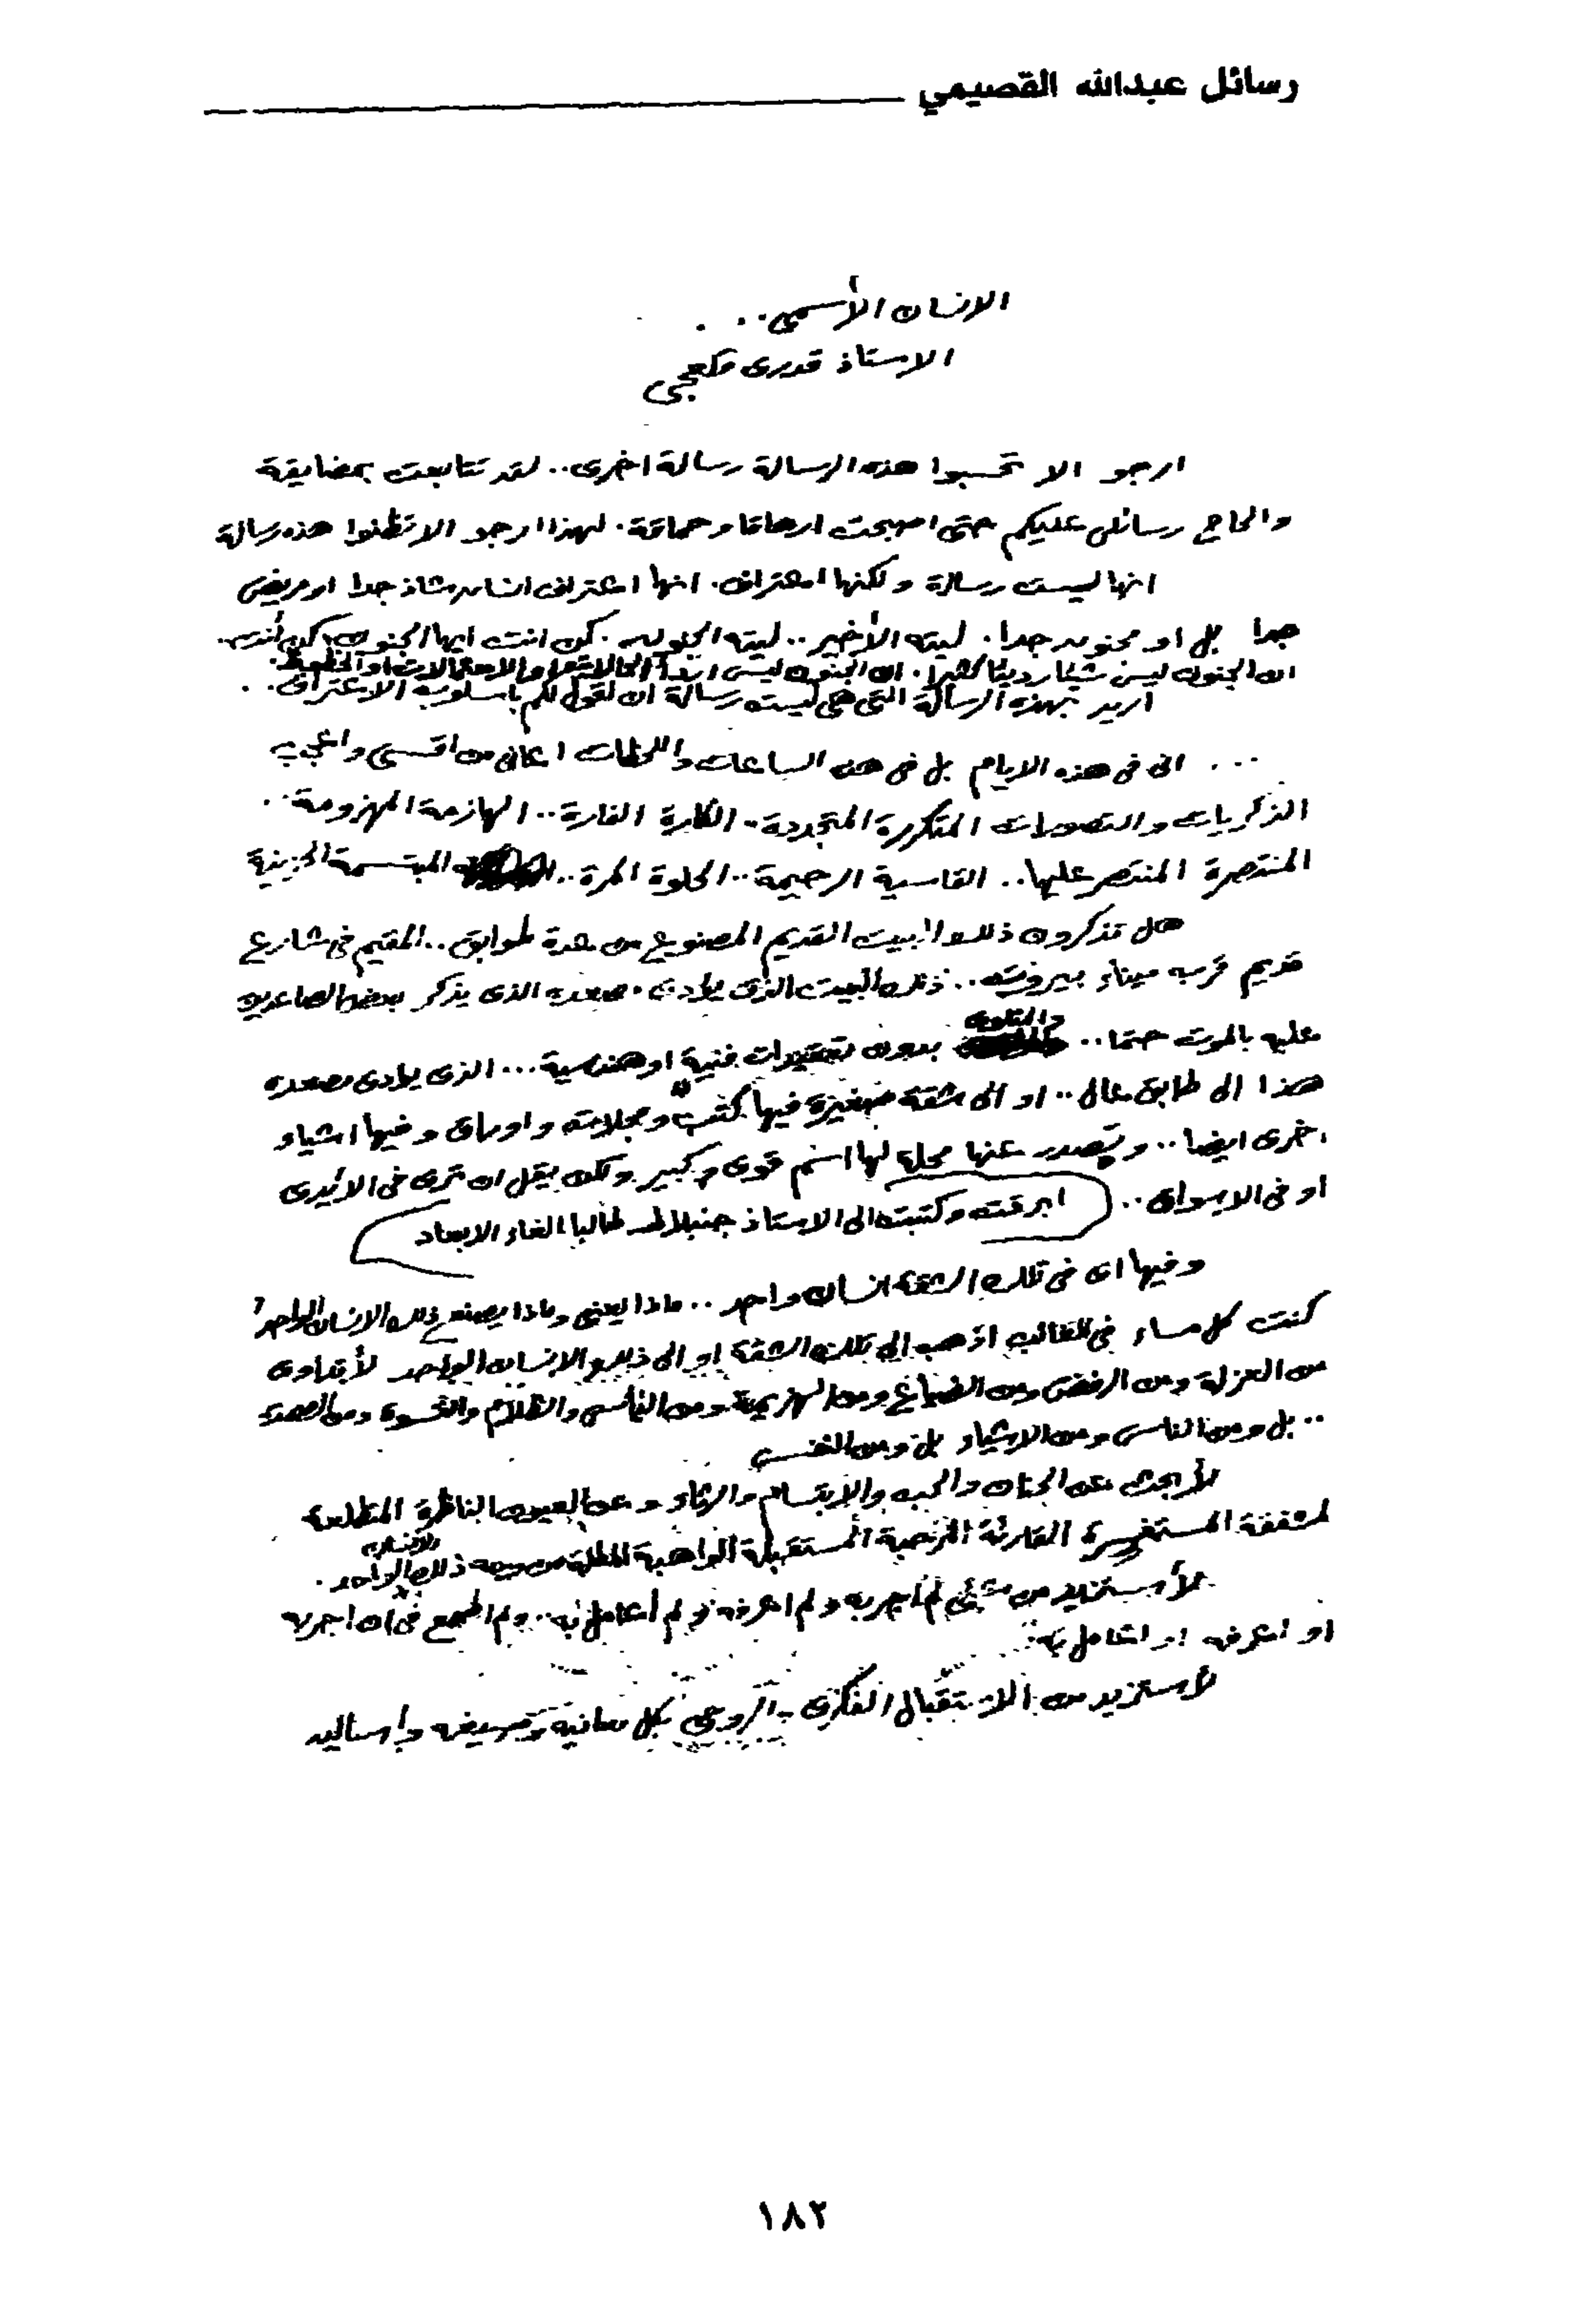 رسائل عبدالله القصيمي
الانسان الأسمى . . .
الاستاذ قدرى قلعجى
ارجو الا تحسبوا هذه الرسالة رسالة اخرى .. لقد تتابعت بمضايقة
والحاح رسائلى عليكم حتى اصبحت ارهاقا وحماقة . لهذا ارجو الا تظنوا هذه رسالة
انها ليست رسالة ولكنها اعتراف . انها اعتراف انسان شاذ جدا او مريض
جدا بل او مجنون جدا . ليته الأخير .. ليته الجنون . كن انت ايها الجنون كن أنت .
ان الجنون ليس شيئا رديئا كثيرا . ان الجنون ليس اردأ الحالات او الاحتمالات او الحظوظ .
اريد بهذه الرسالة التى هى ليست رسالة ان اقول لكم باسلوب الاعتراف . .
. . . انى فى هذه الايام بل فى هذه الساعات واللحظات اعانى من اقسى واعجب
الذكريات والتصورات المتكررة المتجددة .. الكارة الفارة .. الهازمة المهزومة . .
المنتصرة المنتصر عليها .. القاسية الرحيمة .. الحلوة المرة .. المبتسمة الحزينة
هل تذكرون ذلك البيت القديم المصنوع من عدة طوابق .. المقيم فى شارع
قديم قرب ميناء بيروت .. ذلك البيت الذى يؤدى مصعده الذى يذكر بعض الصاعدين
عليه بالموت حتما .. والتلوى بدون تعقيدات فنية او هندسية ... الذى يؤدى مصعده
هذا الى طابق عال .. او الى شقة صغيرة فيها كتب ومجلات واوراق وفيها اشياء
اخرى ايضا .. وتصدر عنها مجلة لها اسم قوى وكبير ولكن يقل ان ترى فى الايدى
او فى الاسواق .. ( ابرقت وكتبت الى الاستاذ جنبلاط طالبا الغاء الابعاد )
وفيها اى فى تلك الشقة انسان واحد .. ماذا يعنى وماذا يصنع ذلك الانسان الواحد ؟
كنت كل مساء فى الغالب اذهب الى تلك الشقة او الى ذلك الانسان الواحد لأتداوى
من العزلة ومن الرفض ومن الضياع ومن الهزيمة ومن اليأس والظلام والقسوة ومن الصمت
.. بل ومن الناس ومن الاشياء بل ومن النفس
لأبحث عن الحنان والحب والابتسام والرثاء وعن العيون الناظرة المتطلعة
المشفقة المستفسرة القارئة المرحبة المستقبلة الواهبة المطلة من وجه ذلك الانسان الواحد .
لأستزيد من شئ لم اجربه ولم اعرفه ولم أتعامل به .. ولم اطمع فى ان اجربه
او اعرفه او اتعامل به .
لأستزيد من الاستقبال الفكرى والروحى بكل معانيه وصيغه واساليبه
١٨٢